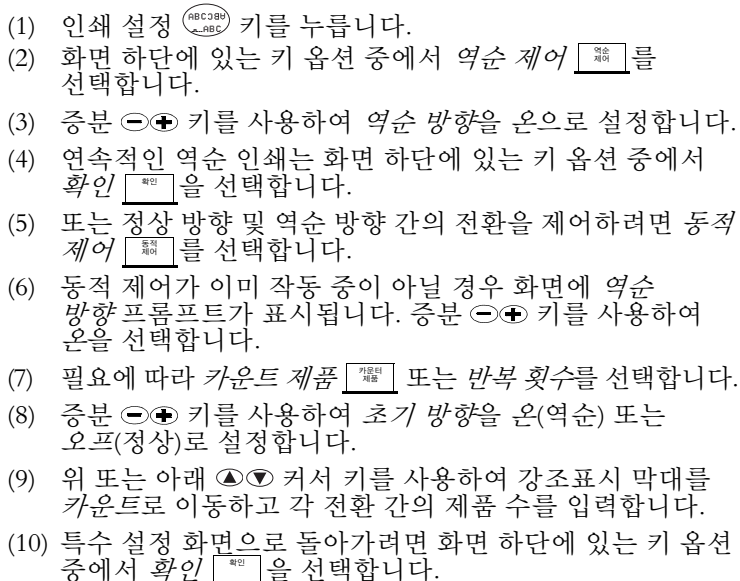 (1) 인쇄 설정 ABCABC ABC 키를 누릅니다.
(2) 화면 하단에 있는 키 옵션 중에서 역순 제어 역순 제어 를
선택합니다.
(3) 증분 키를 사용하여 역순 방향을 온으로 설정합니다.
(4) 연속적인 역순 인쇄는 화면 하단에 있는 키 옵션 중에서
확인 확인 을 선택합니다.
(5) 또는 정상 방향 및 역순 방향 간의 전환을 제어하려면 동적
제어 동적 제어 를 선택합니다.
(6) 동적 제어가 이미 작동 중이 아닐 경우 화면에 역순
방향 프롬프트가 표시됩니다. 증분 키를 사용하여
온을 선택합니다.
(7) 필요에 따라 카운트 제품 카운터 제품 또는 반복 횟수를 선택합니다.
(8) 증분 키를 사용하여 초기 방향을 온(역순) 또는
오프(정상)로 설정합니다.
(9) 위 또는 아래 커서 키를 사용하여 강조표시 막대를
카운트로 이동하고 각 전환 간의 제품 수를 입력합니다.
(10) 특수 설정 화면으로 돌아가려면 화면 하단에 있는 키 옵션
중에서 확인 확인 을 선택합니다.